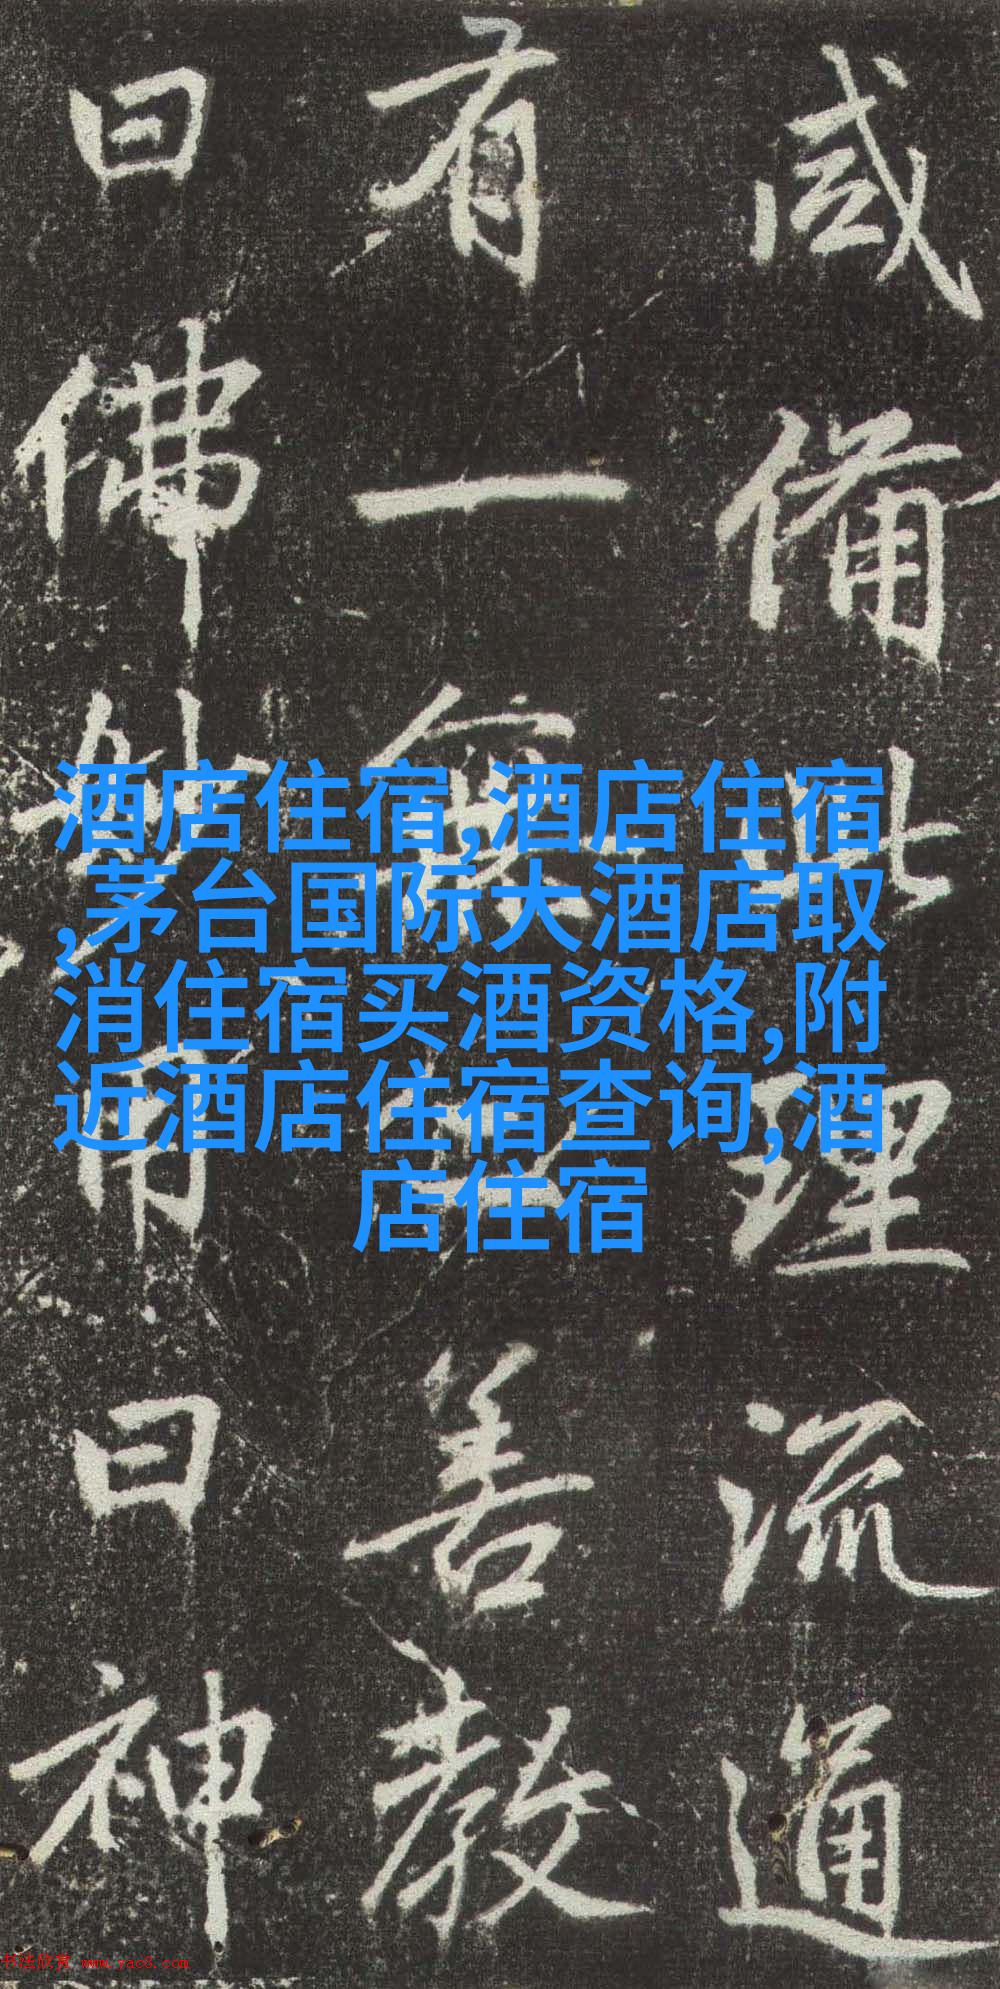 咸備此理流通
有一善教
曰佛用曰神
酒店住宿,酒店住宿
,茅台国际大酒店取
消住宿买酒资格,附
近酒店住宿查询,酒
店住宿
书法欣赏 www.yac8.com